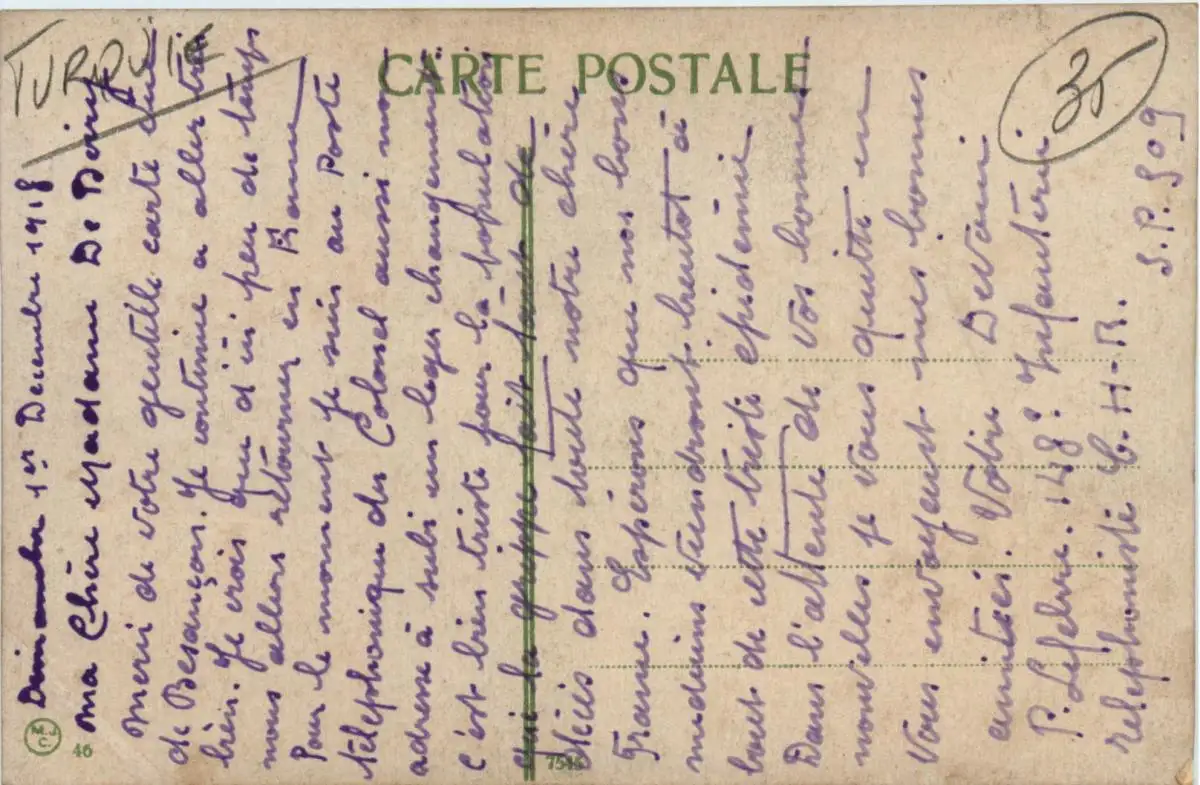 TURQUIE
CARTE POSTALE
35
Dimanche 1er Decembre 1918
Ma Chère Madame De
Merci de votre gentille carte que
de Besançon. Je continue a aller très
bien. Je crois que d'ici peu de temps
nous allons retourner en
Pour le moment je suis au Poste
telephonique du Colonel aussi mon
adresse à subi un leger changement
c'est bien triste pour la population
que la grippe fait tant de
décès dans toute notre chère
France. Esperons que nos bons
medecins viendront bientot à
bout de cette triste epidémie
Dans l'attente de vos bonnes
nouvelles je vous quitte en
vous envoyant mes bonnes
amitiés. Votre Devoué
P. Lefebvre. 148e Infanterie
telephoniste C.H-R.
S.P. 509
M.J.
C.
46